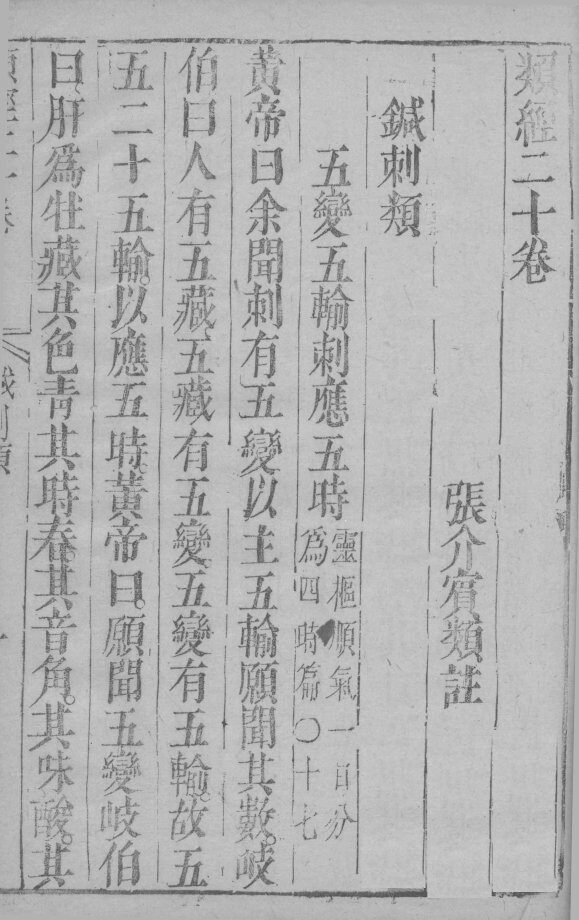 類經二十卷
張介賓類註
鍼刺類
五變五輸刺應五時靈樞順氣一日分爲四時篇〇十七
黃帝曰余聞刺有五變以主五輸願聞其數岐
伯曰人有五藏五藏有五變五變有五輸故五
五二十五輸以應五時黃帝曰願聞五變岐伯
曰肝爲牡藏其色青其時春其音角其味酸其